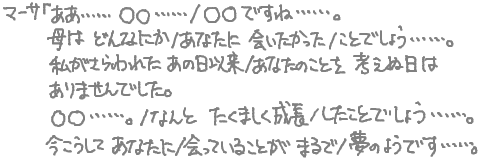 マーサ「ああ…… ○○……/○○ですね……。
母は どんなにか/あなたに 会いたかった/ことでしょう……。
私がさらわれた あの日以来/あなたのことを 考えぬ日は
ありませんでした。
○○……。/なんと たくましく成長/したことでしょう……。
今こうして あなたに/会っていることが まるで/夢のようです……。